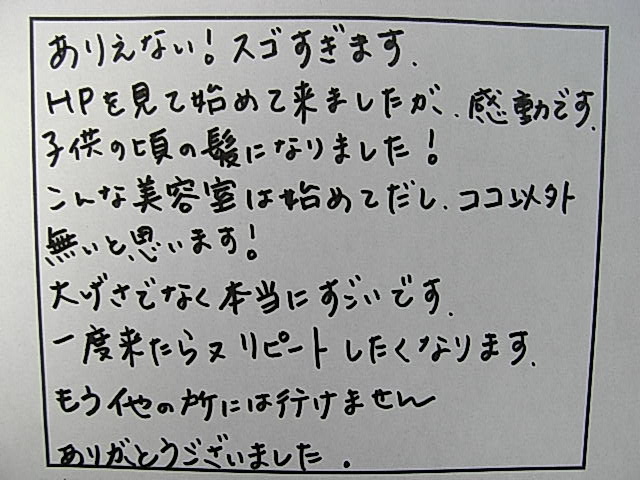 ありえない！スゴすぎます.
HPを見て始めて来ましたが、感動です.
子供の頃の髪になりました！
こんな美容室は始めてだし、ココ以外
無いと思います！
大げさでなく本当にすごいです.
一度来たら又リピートしたくなります.
もう他の所には行けません
ありがとうございました.